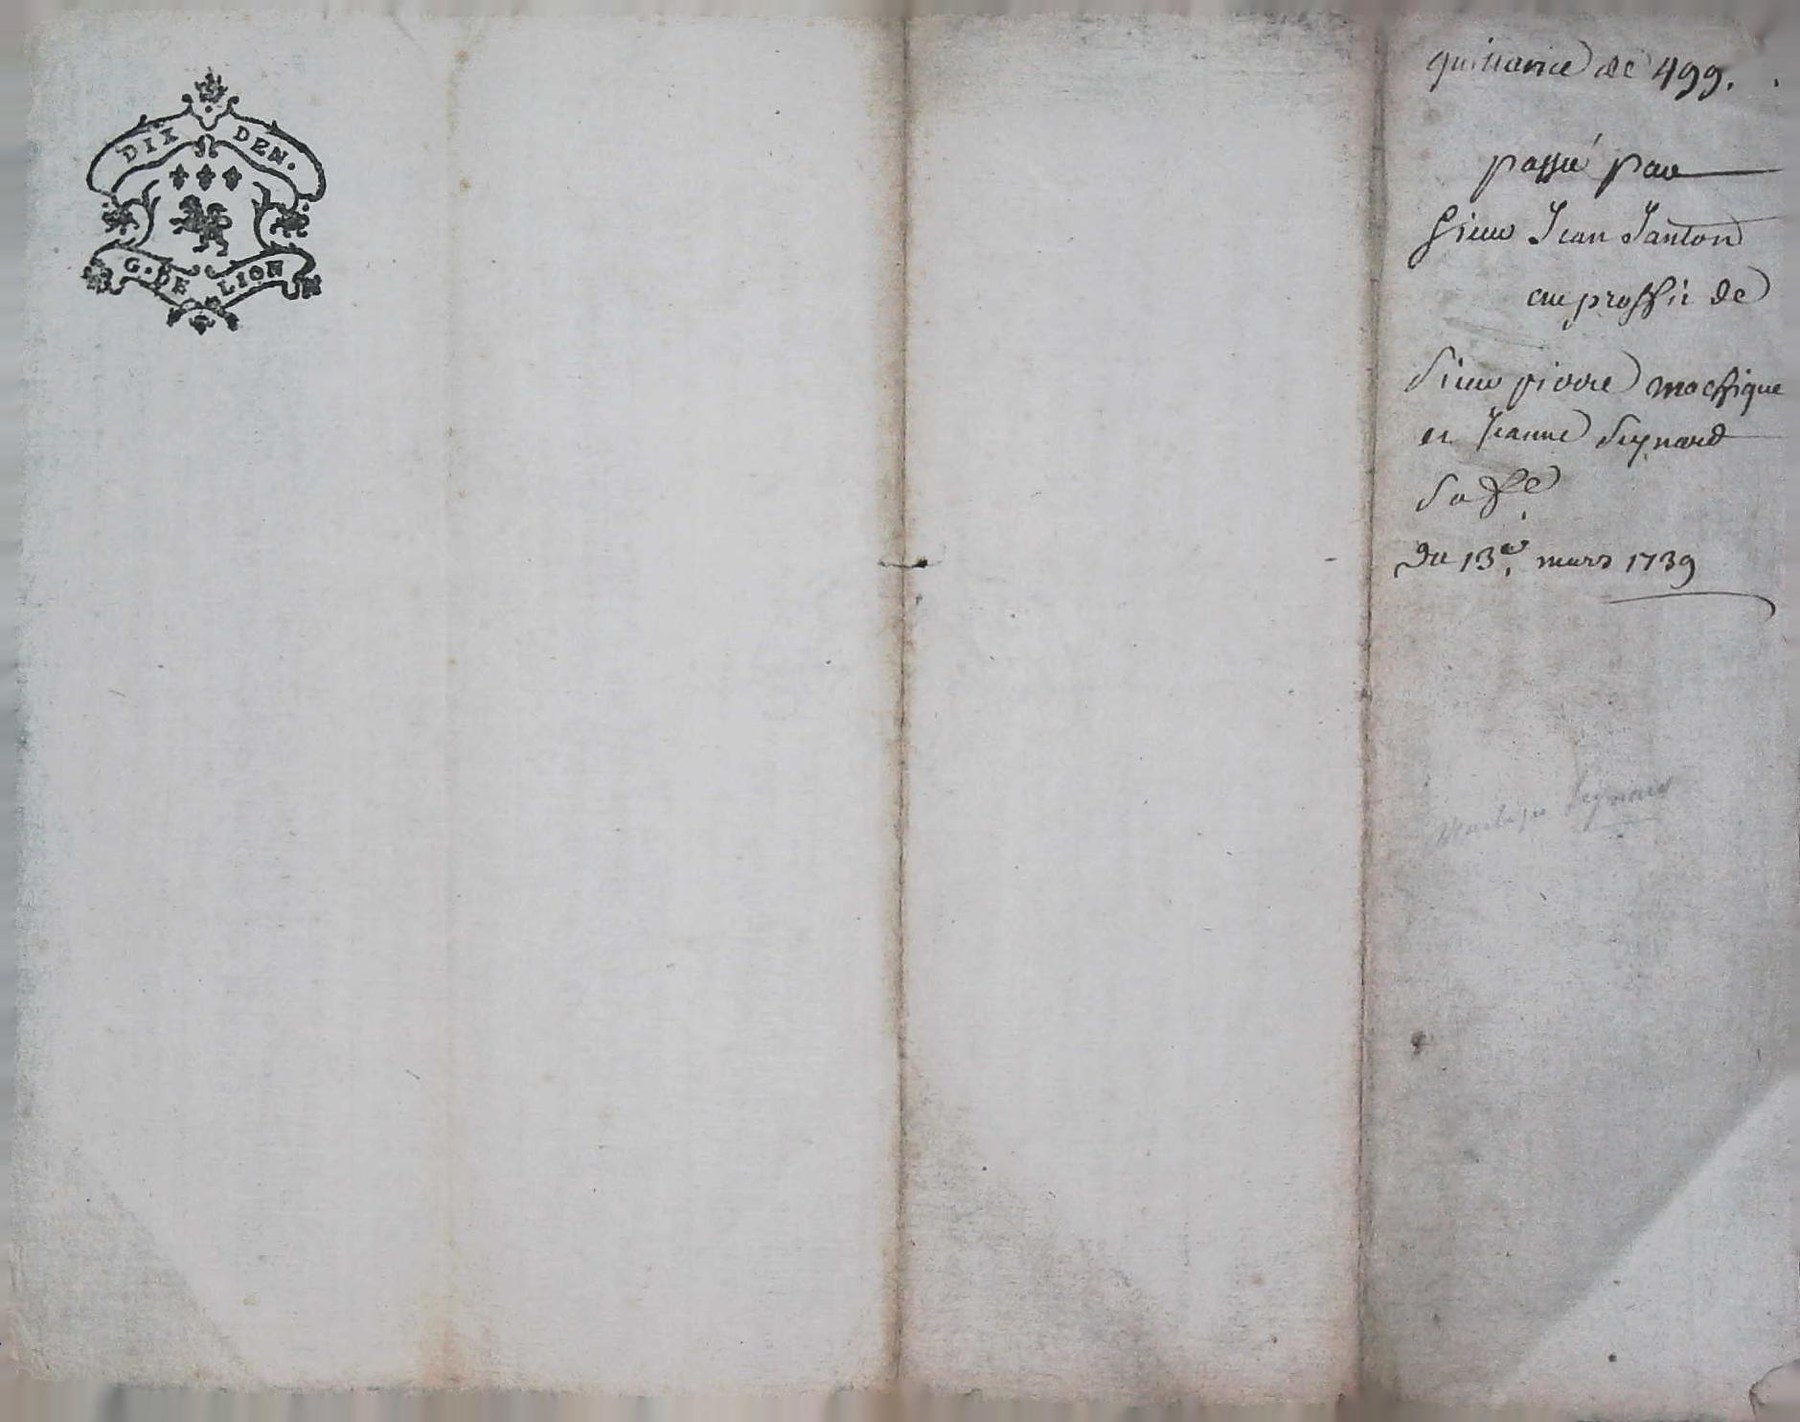 DIX DEN.
G. DE LION
quittance de 499.
passé par
Sieur Jean Janton
au proffit de
Sieur pierre
et Jeanne Seynard
Sa fe
Du 13e mars 1739
Seynard